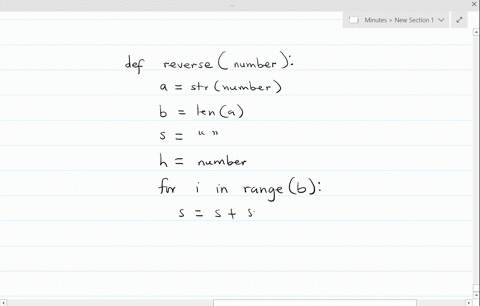 Minutes > New Section 1
def reverse(number):
a = str(number)
b = len(a)
s = “ ”
h = number
for i in range(b):
s = s + s